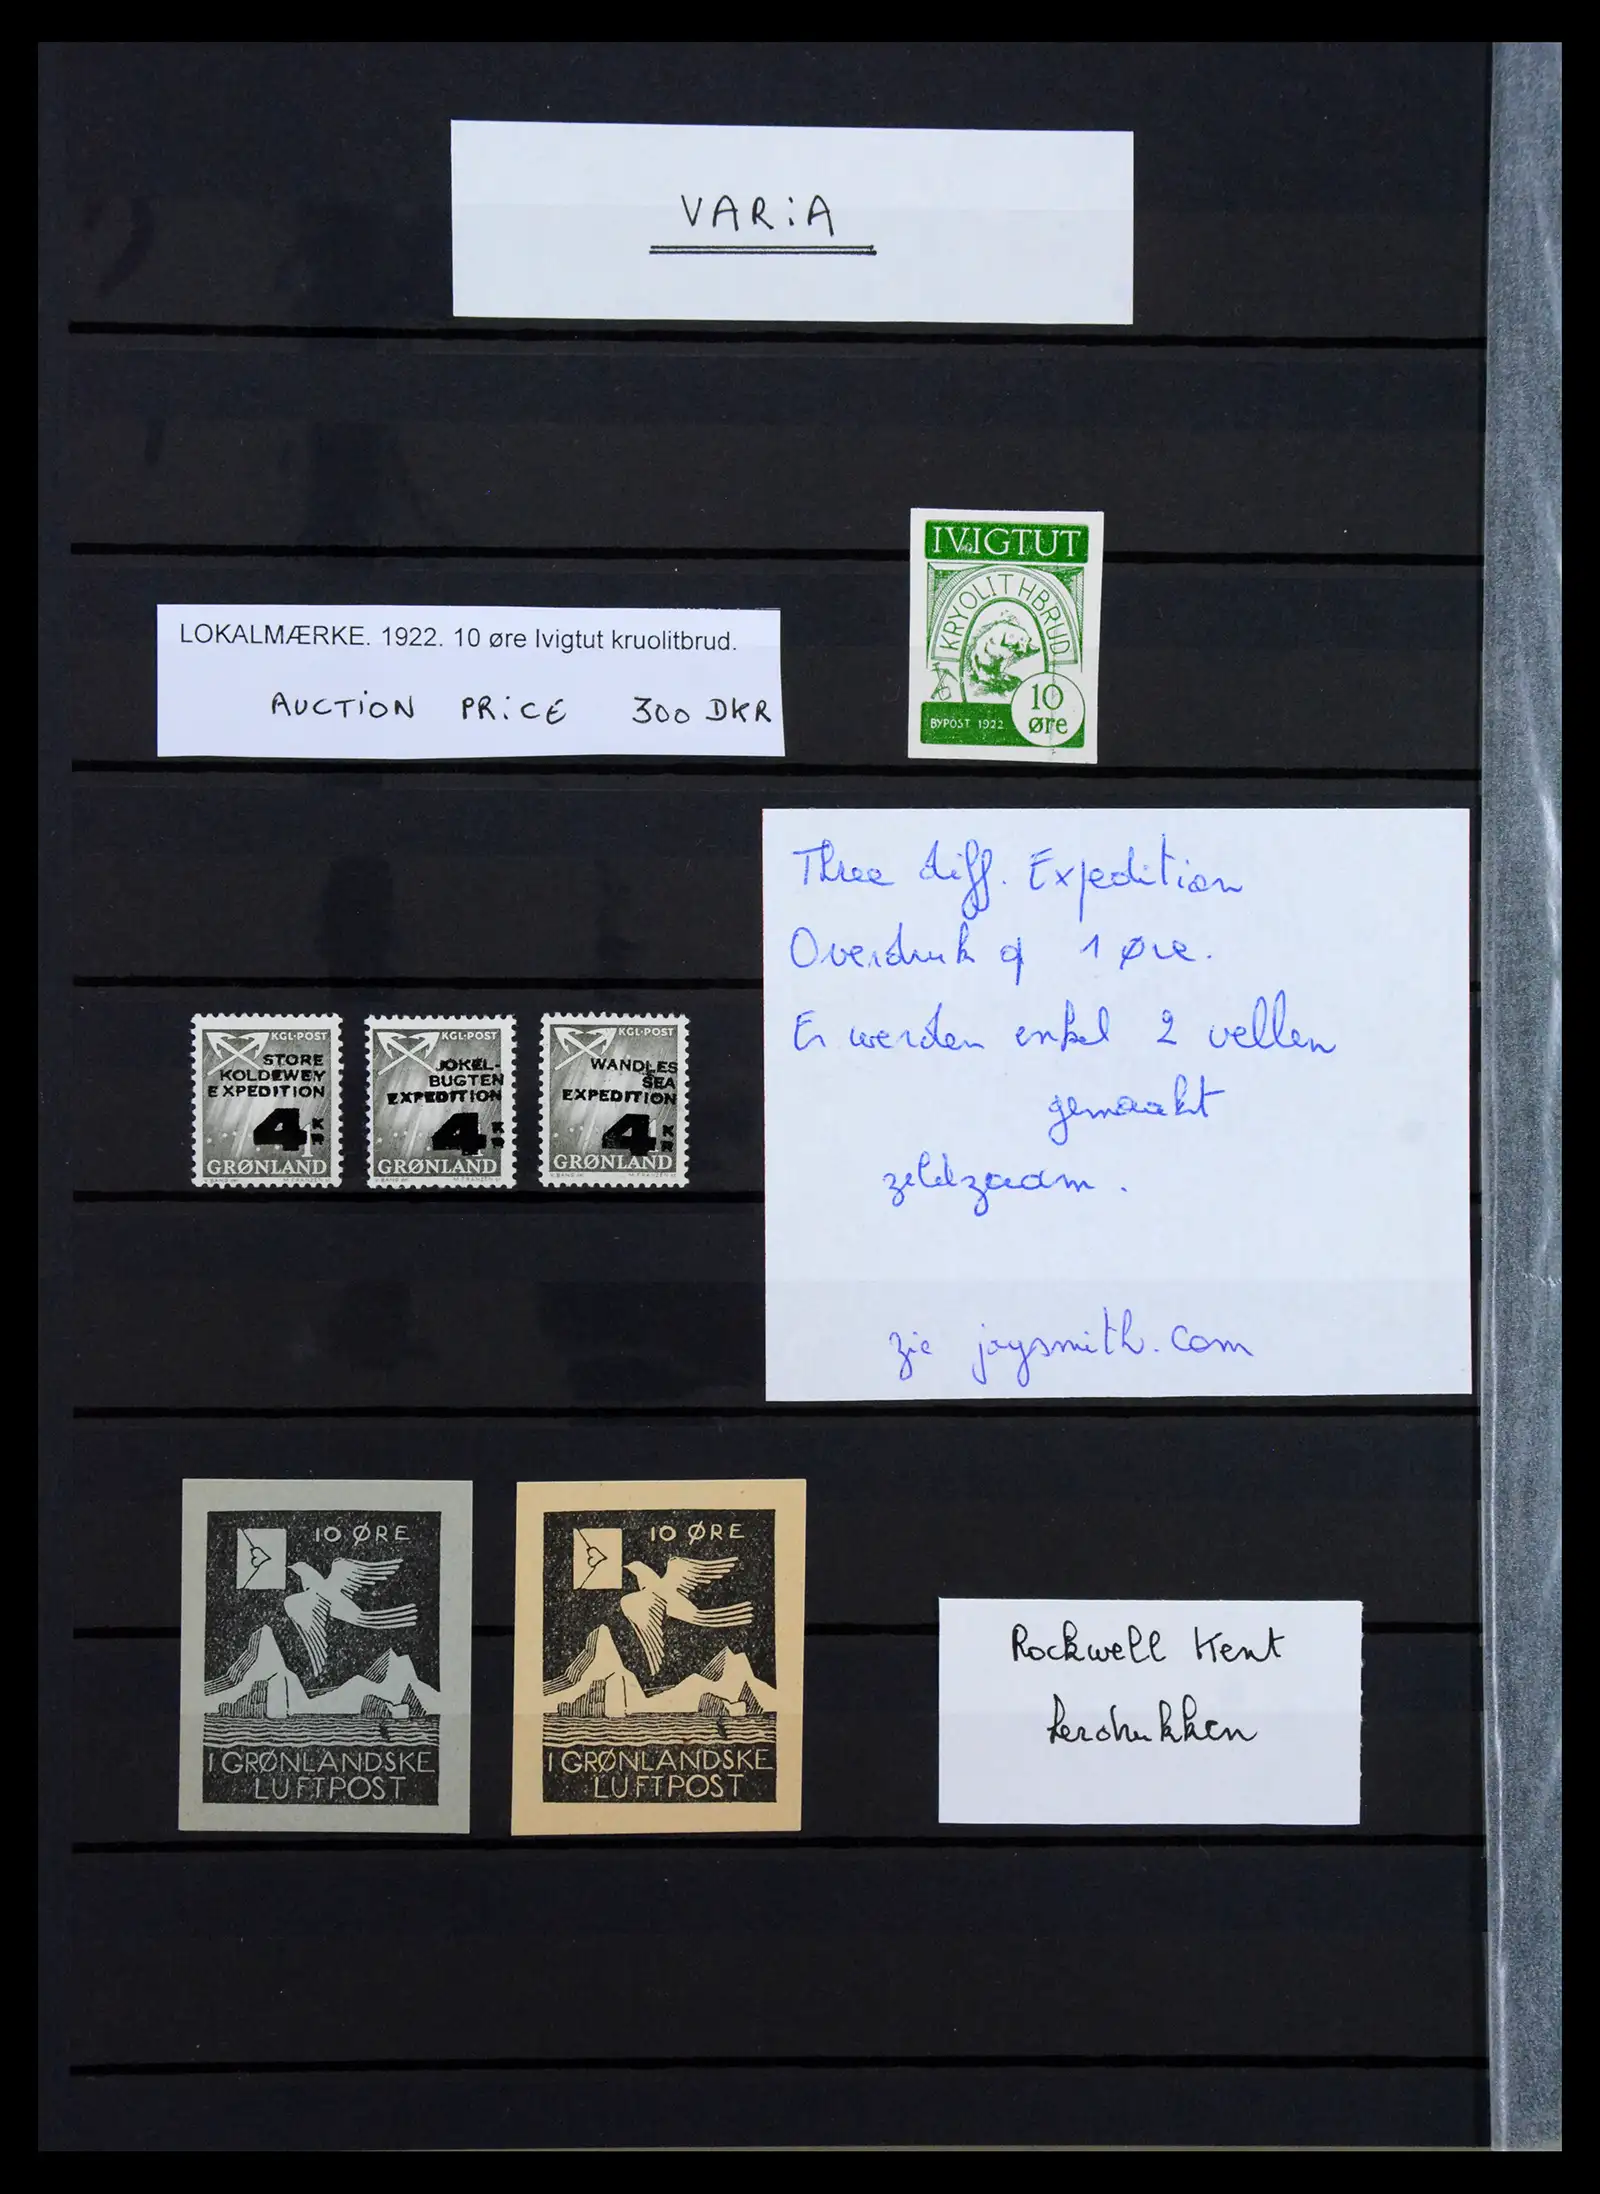 VARiA
IVIGTUT
KRYOLITHBRUD
10
øre
BYPOST 1922.
LOKALMÆRKE. 1922. 10 øre Ivigtut kruolitbrud.
AUCTiON PRiCE 300 DKR
Three diff. Expedition
Overdruk op 1 Øre.
Er werden enkel 2 vellen
gemaakt
zeldzaam.
zie jaysmith.com
KGL·POST
STORE
KOLDEWEY
EXPEDITION
4 KR
1
GRØNLAND
KGL·POST
JOKEL-
BUGTEN
EXPEDITION
4
GRØNLAND
KGL·POST
WANDLES
SEA
EXPEDITION
4 KR
GRØNLAND
10 ØRE
I GRØNLANDSKE
LUFTPOST
10 ØRE
I GRØNLANDSKE
LUFTPOST
Rockwell Kent
herdrukken